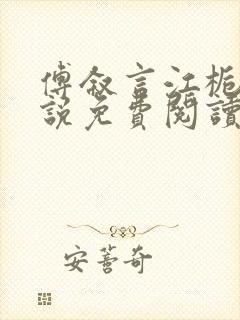 傅叙言江栀
說免費閱讀
安蕁奇